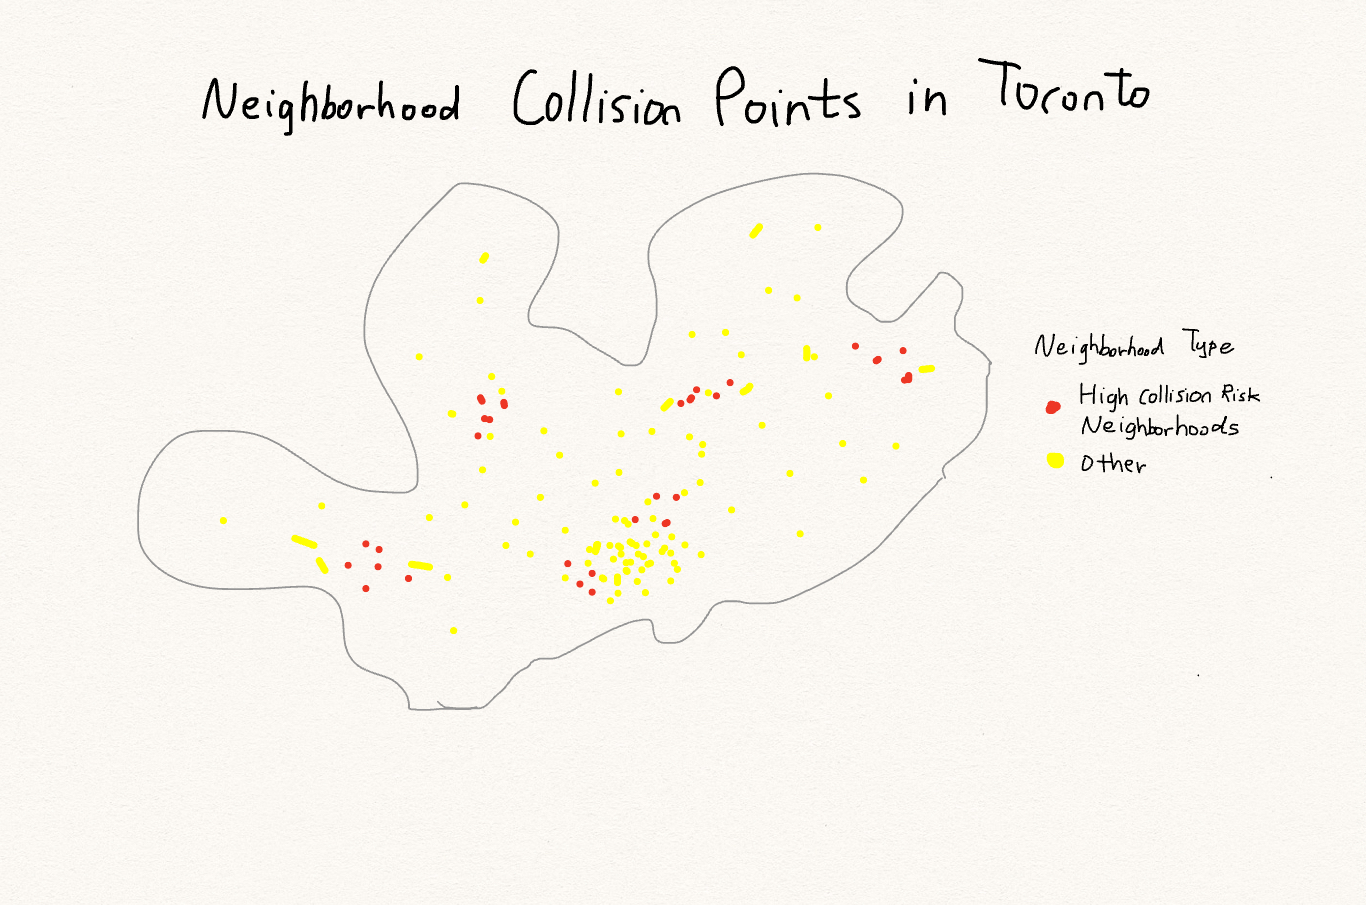 Neighborhood Collision Points in Toronto
Neighborhood Type
High Collision Risk
Neighborhoods
Other